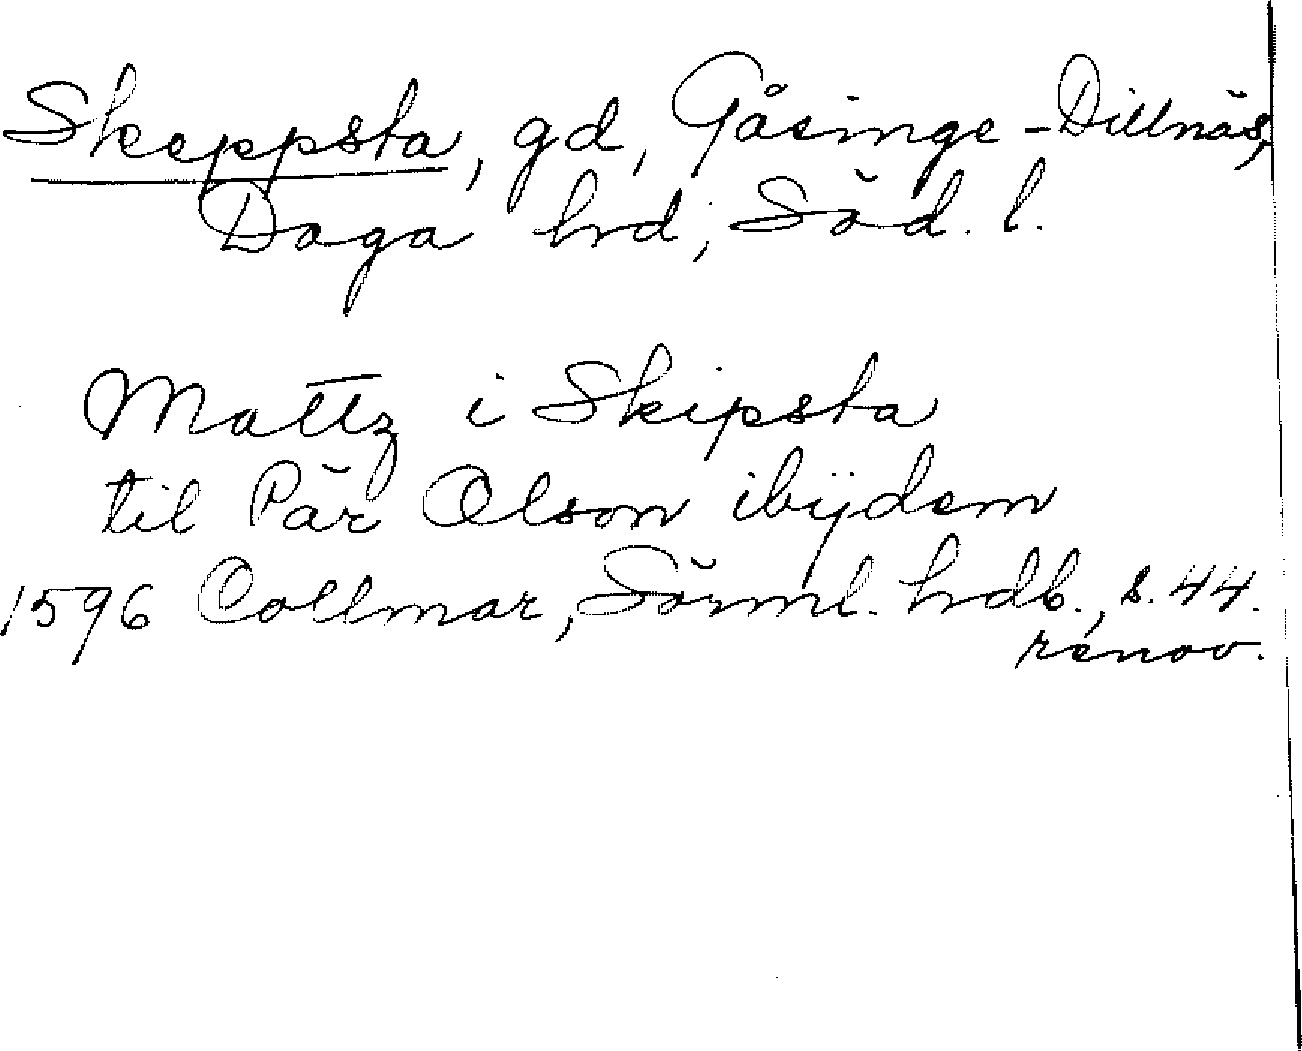 Skeppsta, gd, Gåsinge-Dillnäs,
Daga hrd, Söd. l.
Mattz i Skipsta
til Pär Olson ibijdem
1596 Collmar, Sörml. hrdb., s. 44.
renov.